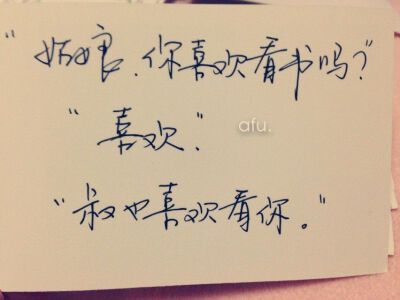 “姑娘.你喜欢看书吗?”
“喜欢”.
afu.
“叔也喜欢看你。”